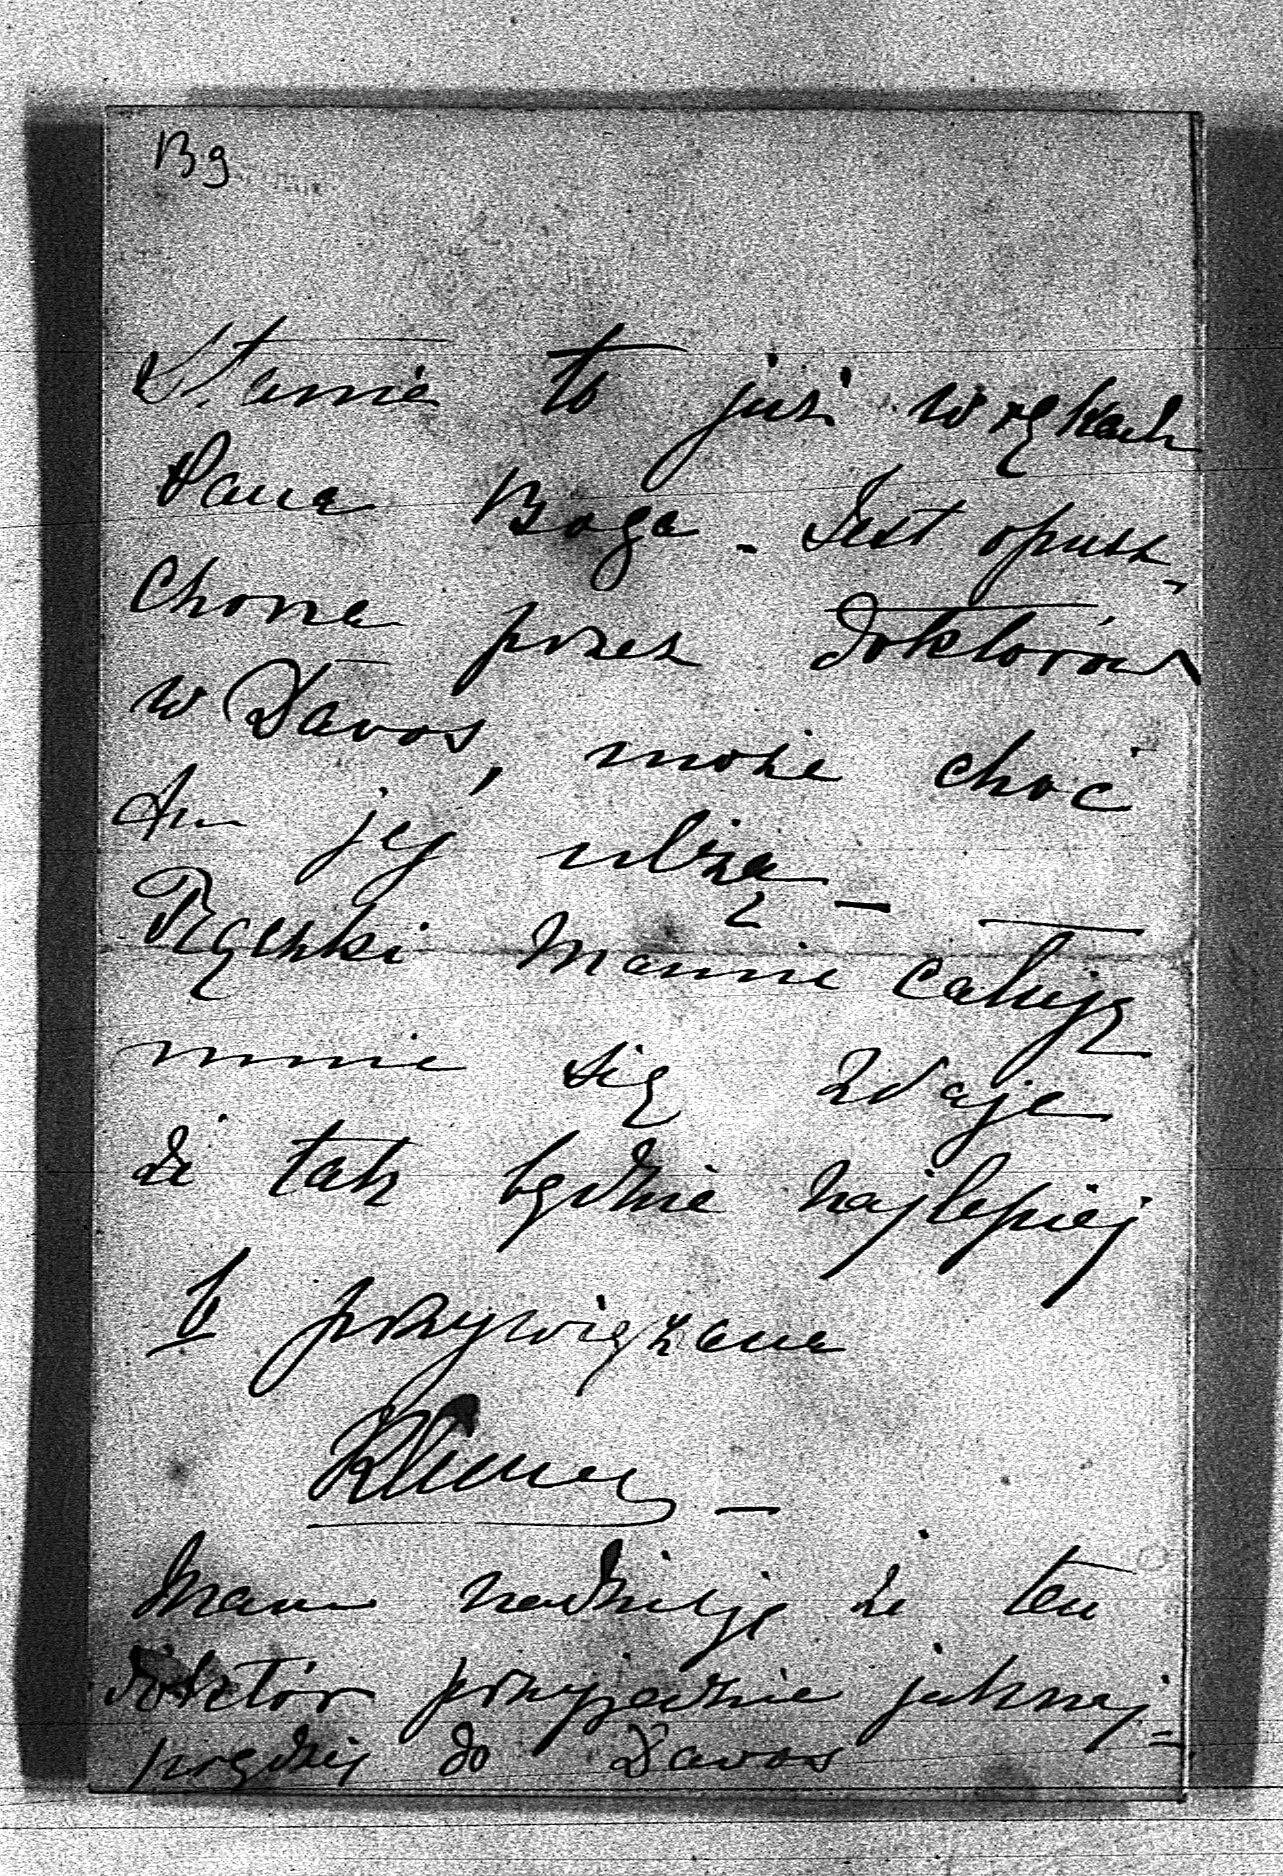 Bg
Stanie to już w rękach
Pana Boga - Jest opusz-
chona przez doktorów
w Davos, może choć
jej ulżą -
Rączki Mamie całuję
mnie się zdaje
że tak będzie najlepiej
przywiązana
Mam nadzieję że ten
doktór przyjedzie jaknaj-
prędzej do Davos